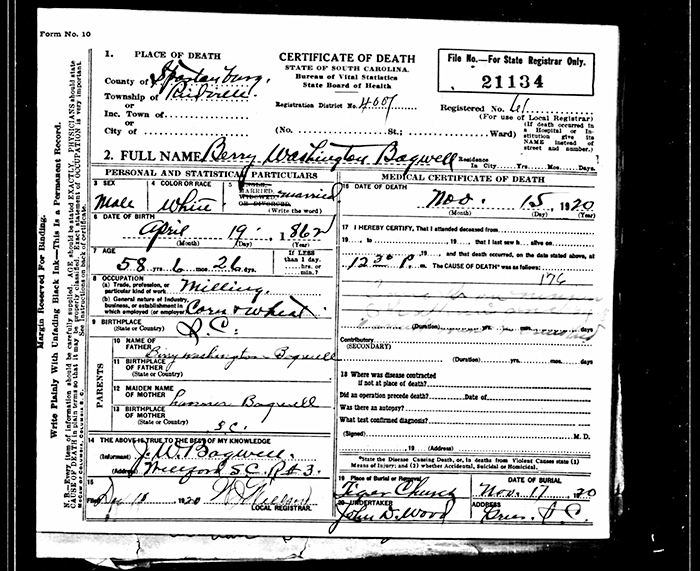 Form No. 10
1. PLACE OF DEATH
County of Spartanburg
Township of Reidville
or
Inc. Town of
or
City of
CERTIFICATE OF DEATH
STATE OF SOUTH CAROLINA.
Bureau of Vital Statistics
State Board of Health
Registration District No. 4007
(No. St.; Ward)
File No.—For State Registrar Only.
21134
Registered No. 61
(For use of Local Registrar)
(If death occurred in a Hospital or Institution give its NAME instead of street and number.)
2. FULL NAME Berry Washington Bagwell
Residence In City Yrs. Mos. Days.
PERSONAL AND STATISTICAL PARTICULARS
3 SEX
Male
4 COLOR OR RACE
White
5 SINGLE, MARRIED, WIDOWED, OR DIVORCED. married
(Write the word)
6 DATE OF BIRTH
April 19 1862
(Month) (Day) (Year)
7 AGE
58 yrs. 6 mos. 26 ds.
If LESS than 1 day. hrs. or min.?
8 OCCUPATION
(a) Trade, profession, or particular kind of work Milling
(b) General nature of industry, business, or establishment in which employed (or employer) Corn & wheat
9 BIRTHPLACE
(State or Country) S.C.
PARENTS
10 NAME OF FATHER
Berry Washington Bagwell
11 BIRTHPLACE OF FATHER
(State or Country)
12 MAIDEN NAME OF MOTHER
Bagwell
13 BIRTHPLACE OF MOTHER
(State or Country) S.C.
14 THE ABOVE IS TRUE TO THE BEST OF MY KNOWLEDGE
(Informant) J.W. Bagwell
(Address) Wellford S.C. R# 3.
15
Filed 1920
LOCAL REGISTRAR.
MEDICAL CERTIFICATE OF DEATH
16 DATE OF DEATH
Nov. 15 1920
(Month) (Day) (Year)
17 I HEREBY CERTIFY, That I attended deceased from
19 to 19 that I last saw h alive on
19 and that death occurred, on the date stated above, at
12 30 P. m. The CAUSE OF DEATH* was as follows:
176
(Duration) yrs. mos. days
Contributory
(SECONDARY)
(Duration) yrs. mos. days
18 Where was disease contracted
if not at place of death?
Did an operation precede death? Date of
Was there an autopsy?
What test confirmed diagnosis?
(Signed) M. D.
19 (Address)
*State the Disease Causing Death, or, in deaths from Violent Causes state (1) Means of Injury; and (2) whether Accidental, Suicidal or Homicidal.
19 Place of Burial or Removal
Tiger Church
DATE OF BURIAL
Nov. 17 20
20 UNDERTAKER
John D. Wood
ADDRESS
Greer S.C.
Margin Reserved For Binding.
Write Plainly With Unfading Black Ink—This Is a Permanent Record.
N. B.—Every item of information should be carefully supplied. AGE should be stated EXACTLY. PHYSICIANS should state
CAUSE OF DEATH in plain terms so that it may be properly classified. Exact statement of OCCUPATION is very important.
See instructions on back of certificate.